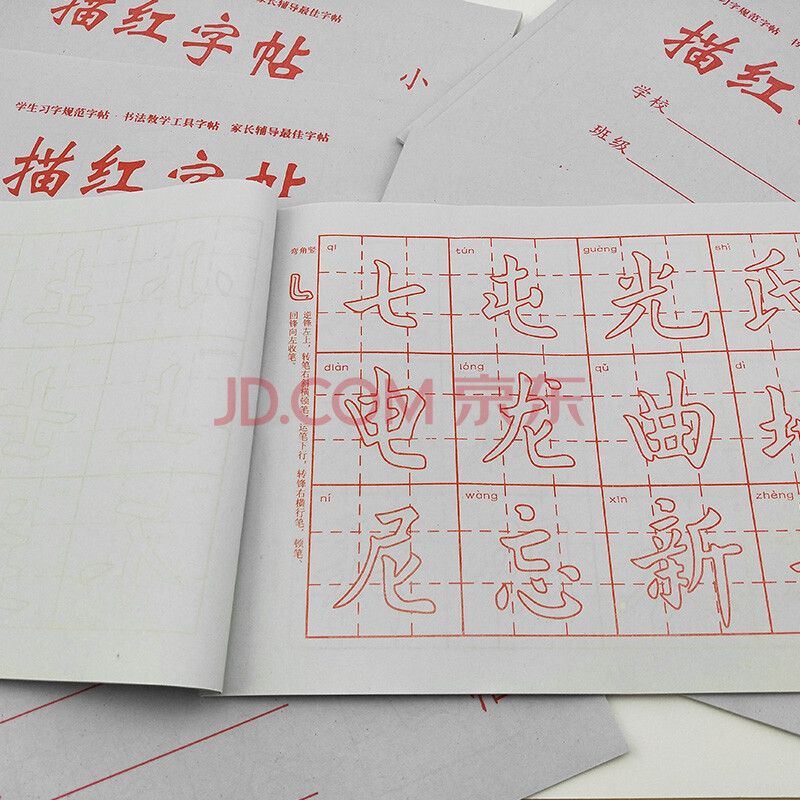 家长辅导最佳字帖
描红字帖
小
学生习字规范字帖·书法教学工具字帖 家长辅导最佳字帖
描红字帖
描红
学校
班级
弯角竖
逆锋左上，转笔右斜横顿笔，运笔下行，转锋右横行笔，顿笔、
回锋向左收笔。
qī tún guāng shì
七 屯 光 氏
diàn lóng qǔ dì
电 龙 曲 地
ní wàng xīn zhèng
尼 忘 新
JD.COM 京东